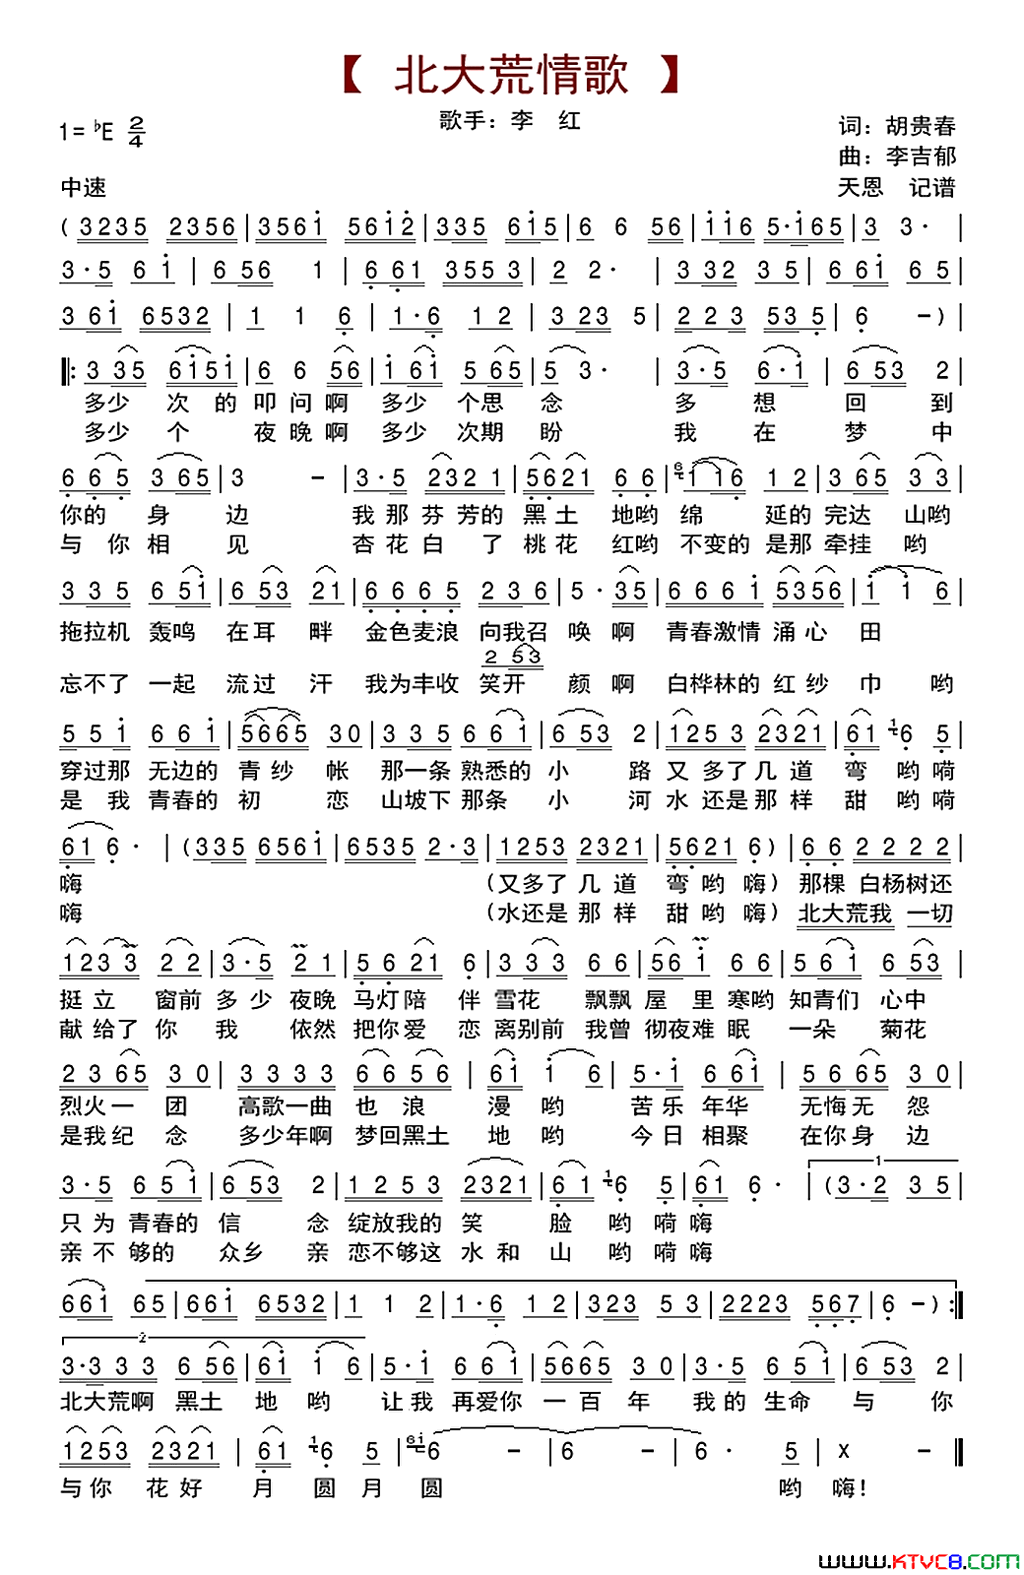 【 北大荒情歌 】
歌手：李 红
1=♭E 2/4
词：胡贵春
曲：李吉郁
中速
天恩 记谱
(3235 2356|3561 5612|335 615|6 6 56|116 5·165|3 3·|
3·5 6 1|6 56 1|6 61 3553|2 2·|3 32 3 5|6 61 6 5|
3 61 6532|1 1 6|1·6 1 2|3 23 5|2 2 3 53 5|6 -)|
‖:3 35 6151|6 6 56|1 61 5 65|5 3·|3·5 6·1|6 53 2|
多少 次 的 叩 问 啊 多少 个思 念 多 想 回 到
多少 个 夜 晚 啊 多少 次期 盼 我 在 梦 中
6 6 5 3 65|3 -|3·5 232 1|5621 6 6|6 1 16 1 2|3 65 3 3|
你的 身 边 我 那 芬 芳的 黑 土 地哟 绵 延的 完达 山哟
与 你 相 见 杏 花 白 了 桃花 红哟 不变的 是那 牵挂 哟
3 3 5 6 51|6 53 21|6 6 6 5 2 3 6|5· 35|6 6 6 1 5356|1 1 6|
拖拉机 轰鸣 在耳 畔 金色麦浪 向我召 唤 啊 青春激情 涌心 田
2 53
忘不了 一起 流过 汗 我为丰收 笑开 颜 啊 白桦林的 红纱 巾 哟
5 5 1 6 6 1|5665 30|3 3 5 6 6 1|6 53 2|125 3 2321|61 1 6 5|
穿过那 无边的 青纱 帐 那一条 熟悉的 小 路 又 多了 几 道 弯 哟 嗬
是 我 青春的 初 恋 山坡下 那条 小 河 水 还是 那 样 甜 哟 嗬
61 6·|(335 6561|6535 2·3|1253 2321|5621 6)|6 6 2 2 2 2|
嗨 (又多了 几 道 弯 哟 嗨) 那棵 白杨树还
嗨 (水还是 那 样 甜 哟 嗨) 北大荒我 一切
123 3 2 2|3·5 2 1|5 6 21 6|3 3 3 6 6|56 1 6 6|5 6 1 6 53|
挺 立 窗前 多 少 夜晚 马灯陪 伴 雪花 飘飘 屋 里 寒哟 知青们 心中
献 给了 你 我 依然 把你爱 恋 离别前 我曾 彻夜难 眠 一朵 菊花
2 3 65 3 0|3 3 3 3 6 6 5 6|61 1 6|5·1 6 61|5 6 65 3 0|
烈火一 团 高歌一曲 也 浪 漫 哟 苦 乐 年华 无悔无 怨
是我纪 念 多少年啊 梦回黑土 地 哟 今 日 相聚 在你身 边
3·5 6 5 1|6 53 2|1 2 5 3 2321|6 1 1 6 5|61 6·|1 (3·2 3 5|
只 为 青春的 信 念 绽放我的 笑 脸 哟 嗬 嗨
亲 不 够的 众乡 亲 恋不够这 水 和 山 哟 嗬 嗨
661 65|661 6532|1 1 2|1·6 1 2|323 5 3|2223 567|6 -):‖
2
3·3 3 3 6 56|61 1 6|5·1 6 61|5665 3 0|3·5 6 51|6 53 2|
北大荒啊 黑土 地 哟 让我 再爱你 一 百 年 我 的 生命 与 你
1253 2321|61 1 6 5|61 6 -|6 -|6· 5|X -‖
与 你 花 好 月 圆 月 圆 哟 嗨!
www.KTVC8.com